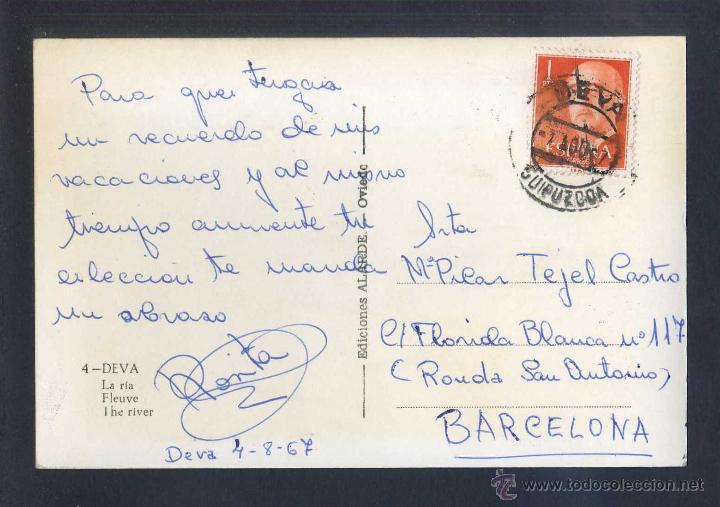 Para que tengas
un recuerdo de mis
vacaciones y al mismo
tiempo aumente tu
colección te manda
un abrazo
Rosita
Deva 4-8-67
4-DEVA
La ría
Fleuve
The river
Ediciones ALARDE. - Oviedo
1
DEVA
GUIPUZCOA
Srta
Mª Pilar Tejel Castro
C/ Florida Blanca nº 117
(Ronda San Antonio)
BARCELONA
© todocoleccion.net
www.todocoleccion.net